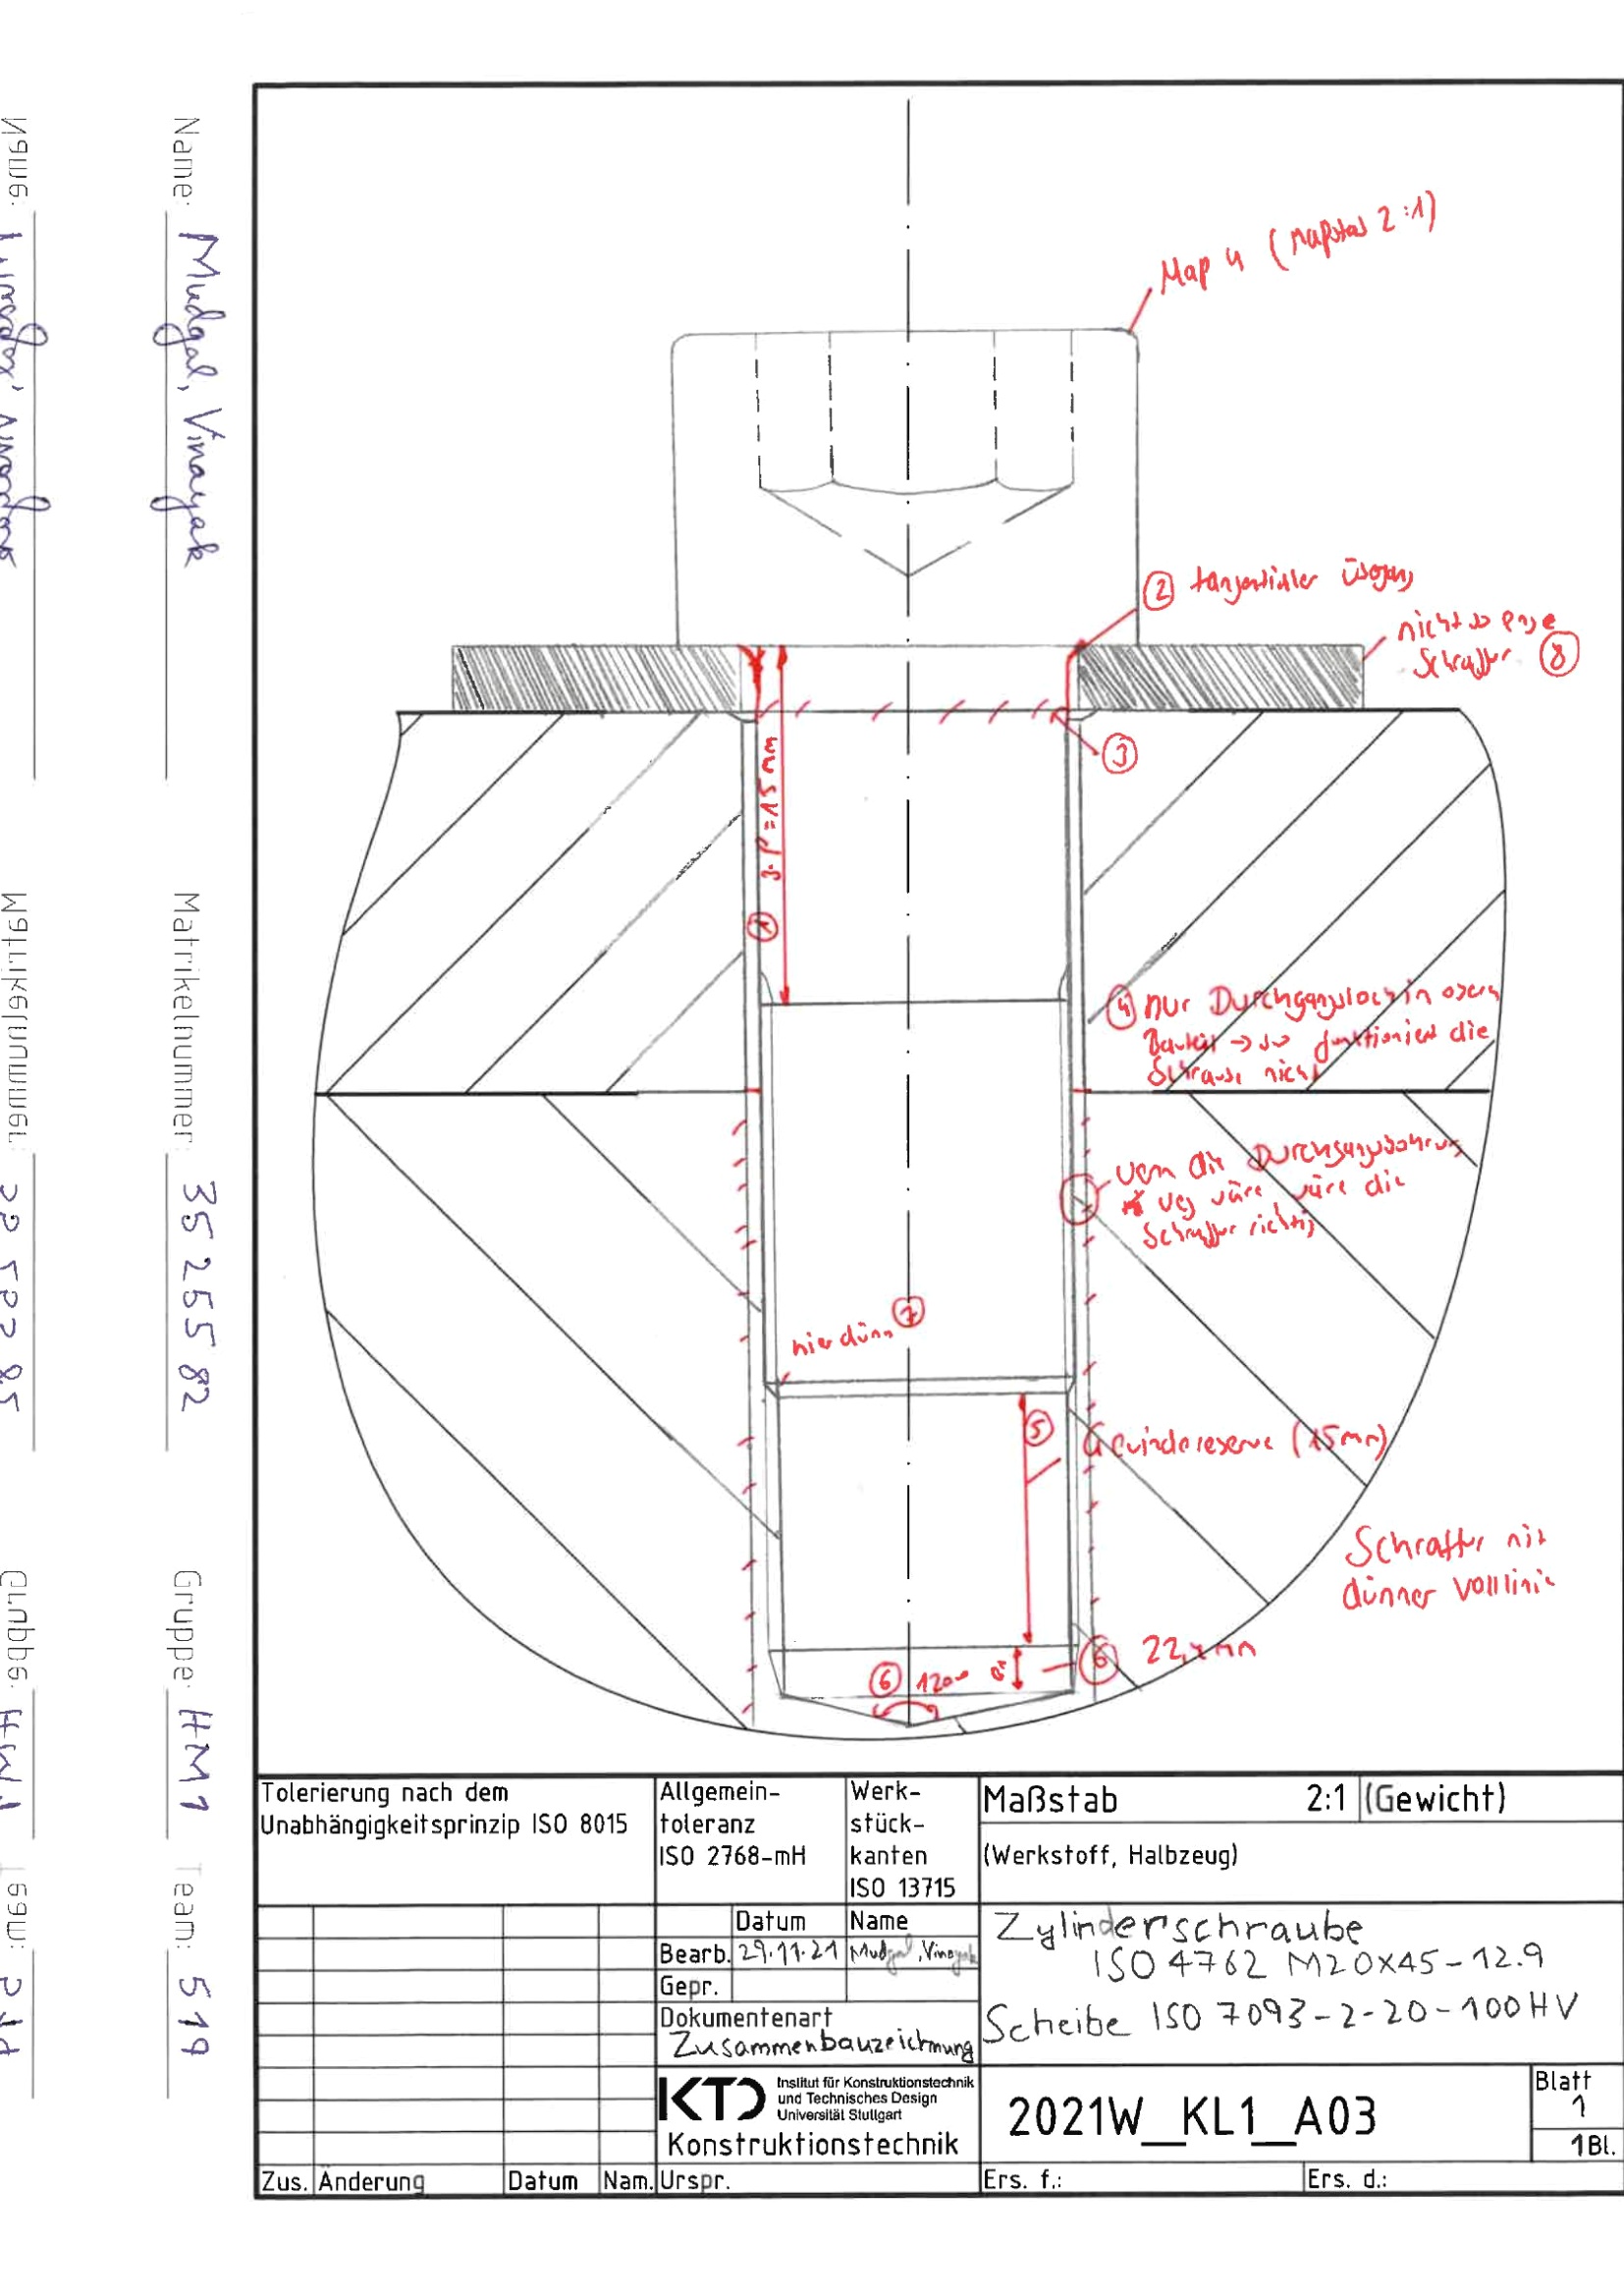 Name: Mudgal, Vinayak
Matrikelnummer: 3525582
Gruppe: HM1
Team: 519
Map 4 (Maßstab 2:1)
② tangentialer
nicht so enge
Schraffur ⑧
③
3·P=15mm
①
④ nur Durchgangsloch in obern
Bauteil → so funktioniert die
Schraube nicht
wen die Durchgangsbohrung
weg wäre wäre die
Schraffur richtig
hier dünn ⑦
⑤
Gewindereserve (15mm)
Schraffur mit
dünner Volllinie
⑥ 120°
⑥ 22, mm
Tolerierung nach dem
Unabhängigkeitsprinzip ISO 8015
Allgemein-
toleranz
ISO 2768-mH
Werk-
stück-
kanten
ISO 13715
Maßstab 2:1 (Gewicht)
(Werkstoff, Halbzeug)
Datum Name
Bearb. 29.11.21 Mudgal, Vinayak
Gepr.
Dokumentenart
Zusammenbauzeichnung
Zylinderschraube
ISO 4762 M20x45-12.9
Scheibe ISO 7093-2-20-100HV
KTD
Institut für Konstruktionstechnik
und Technisches Design
Universität Stuttgart
Konstruktionstechnik
2021W_KL1_A03
Blatt
1
1Bl.
Zus. Änderung Datum Nam. Urspr. Ers. f.: Ers. d.: